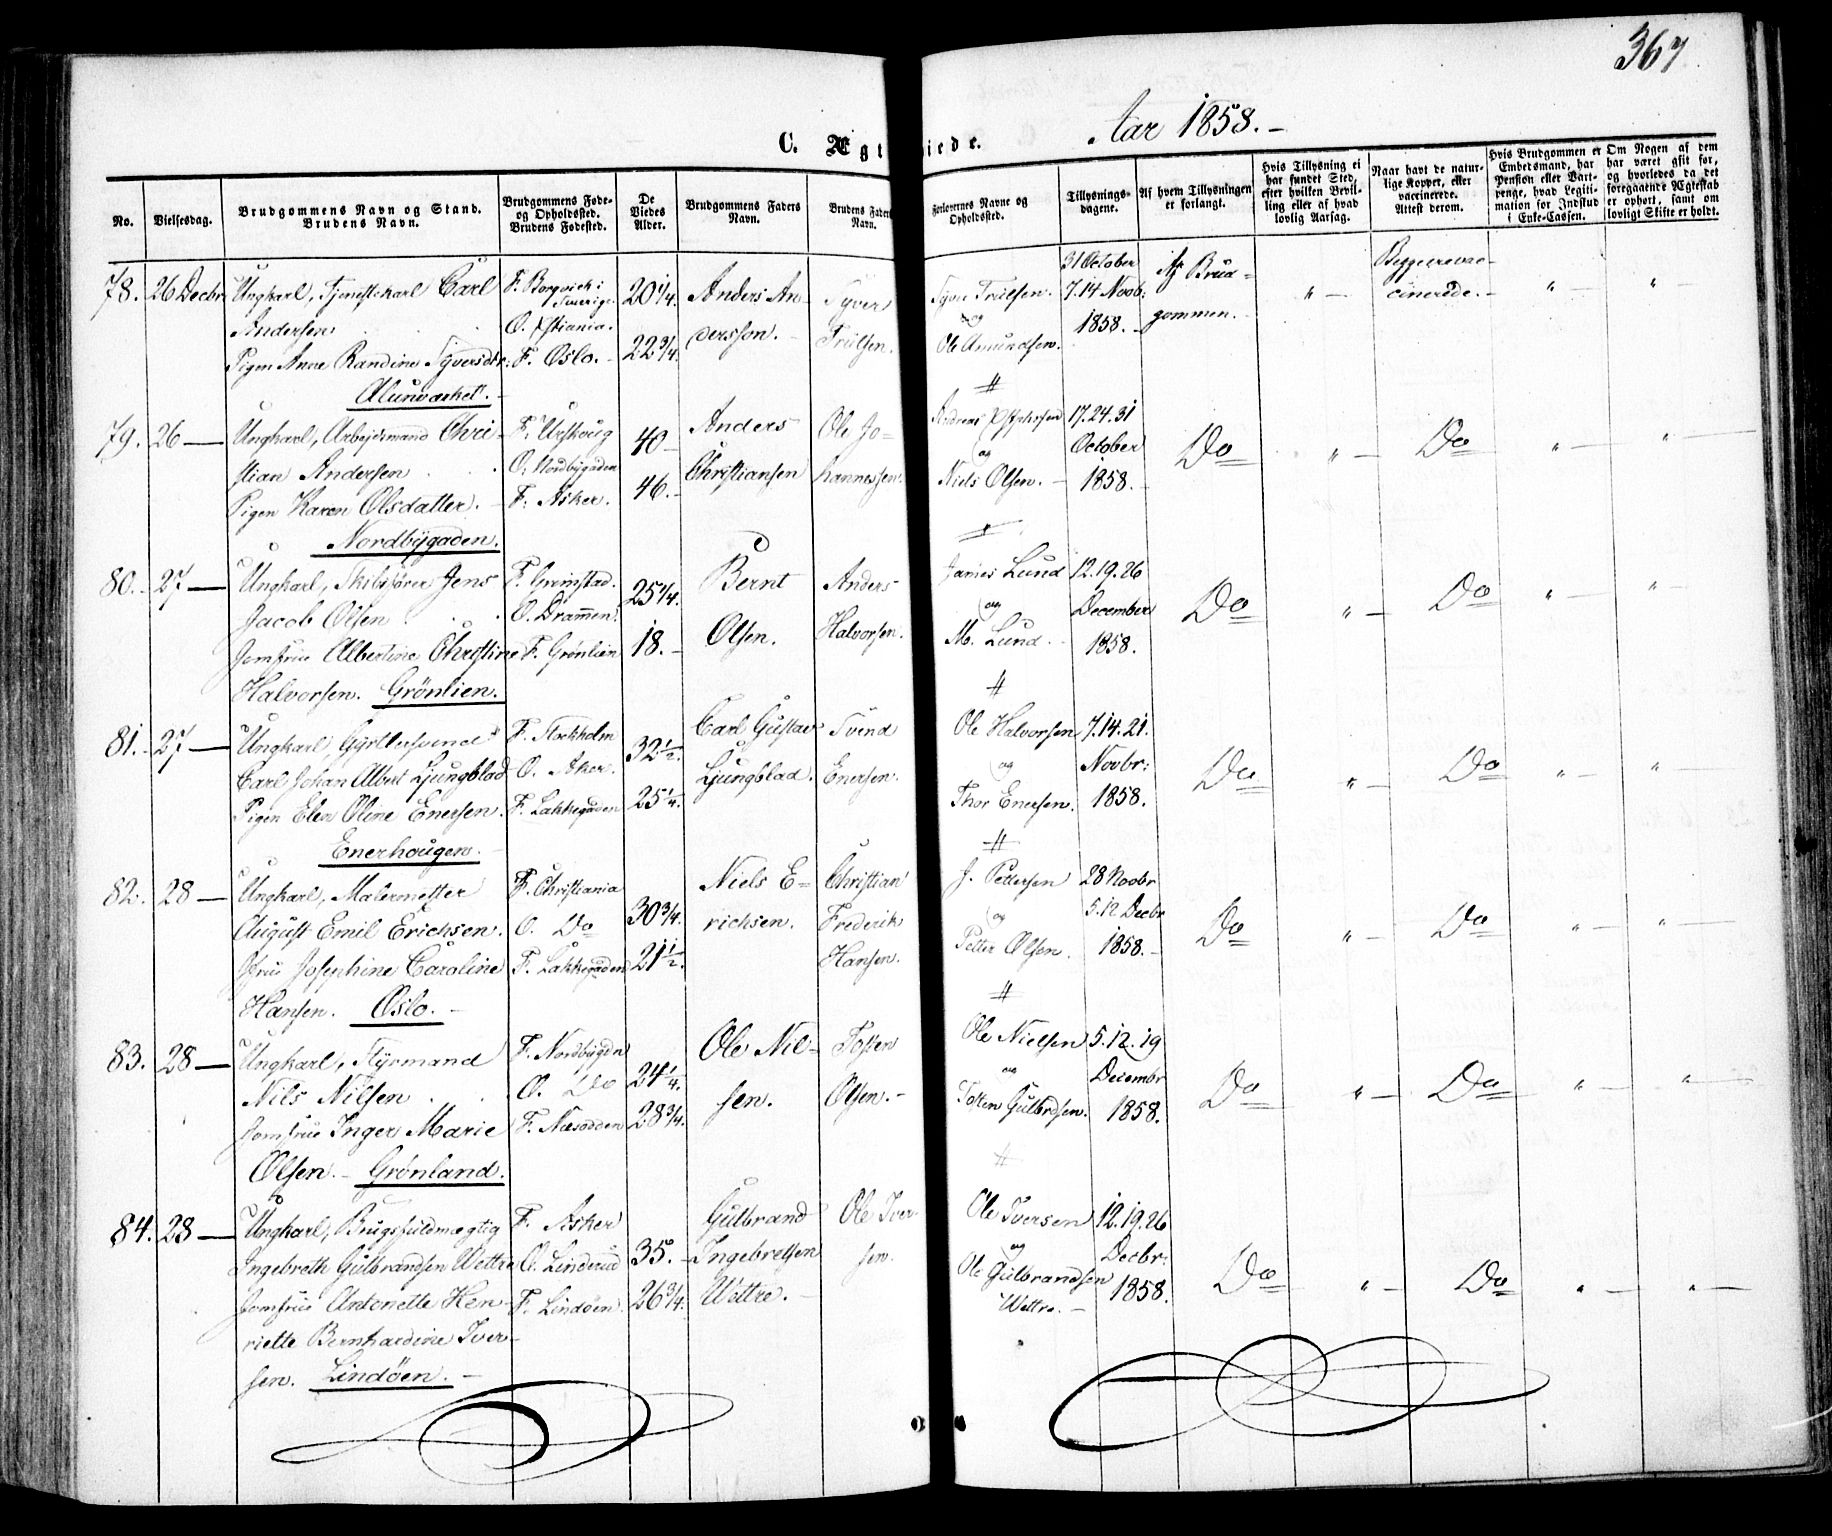 367
C. Ægteviede. Aar 1858.-
No. Vielsesdag. Brudgommens Navn og Stand. Brudens Navn. Brudgommens Føde- og Opholdssted. Brudens Fødested. De Viedes Alder. Brudgommens Faders Navn. Brudens Faders Navn. Forlovernes Navne og Opholdssted. Tillysningsdagene. Af hvem Tillysningen er forlangt. Hvis Tillysning ei har fundet Sted, efter hvilken Bevilling eller af hvad lovlig Aarsag. Naar havt de naturlige Kopper, eller vaccinerede. Attest derom. Hvis Brudgommen er Embedsmand, har Pension eller Vartpenge, hvad Legitimation for Indskud i Enke-Cassen. Om Nogen af dem har været gift før, og hvorledes da det foregaaende Ægteskab er ophørt, samt om lovligt Skifte er holdt.
78. 26 Decbr Ungkarl, Tjenestekarl Carl F. Borgvick i 20 1/4. Anders An- Syver Syver Trulsen. 31 October Af Brud- " - Begge vac- " - " -
Andersen Sverige. dersson. - Trulsen. og 7.14 Novb: gommen. - cinerede. -
O. Xstiania. Ole Amundsen. 1858. -
Pigen Anne Randine Syversdtr: F. Oslo. - 22 3/4.
Alunværket. -
79. 26 — Ungkarl, Arbejdsmand Chri- F. Urskoug 40 - Anders Ole Jo- 17.24.31 Do " - Do " - " -
stian Andersen O. Nordbygaden Christiansen hannessen. og October
Pigen Karen Olsdatter. - F. Asker. 46. - Niels Olsen. - 1858. -
Nordbygaden.
80. 27 — Ungkarl, Skibsfører Jens F. Grimstad. 25 1/4. Bernt Anders James Lund 12.19.26 Do " - Do " - " -
Jacob Olsen O. Drammen. Olsen. Halvorsen. og December
Jomfrue Albertine Christine F. Grønlien 18. - M. Lund. 1858.
Halvorsen. Grönlien.
81. 27 — Ungkarl, Gjørtlersvend F. Stockholm 32 1/2. Carl Gustav Svend Ole Halvorsen 7.14.21. Do " - Do " - " -
Carl Johan Albert Ljungblad O. Aker. Ljungblad. Enersen. og Novbr:
Pigen Elen Oline Enersen. F. Lakkegaden 25 1/4. Thor Enersen. 1858.
Enerhougen. -
82. 28 — Ungkarl, Malermester F. Christiania 30 3/4. Niels E- Christian J. Pettersen 28 Novbr Do " - Do " - " -
August Emil Erichsen. O. Do richsen. Frederik og 5.12 Decbr
Jfrue Josephine Caroline F. Lakkegaden 21 1/2. Hansen. Petter Olsen. 1858. -
Hansen. Oslo. -
83. 28 — Ungkarl, Styrmand F. Nordbygdn 24 1/4. Ole Nil- Tosten Ole Nielsen 5.12.19 Do " - Do " - " -
Nils Nilsen O. Do sen. Olsen. - og Decembr
Jomfrue Inger Marie F. Næsodden 28 3/4. Tosten Gulbrdsen. 1858.
Olsen. - Grönland.
84. 28 — Ungkarl, Brugsfuldmægtig F. Asker 35. - Gulbrand Ole Iver- Ole Iversen 12.19.26 Do " - Do " - " -
Ingebreth Gulbrandsen Wettre O. Linderud Ingebretsen sen. og Decbr:
Jomfrue Antonette Hen- F. Lindøen. 26 3/4. Wettre. - Ole Gulbrandsen 1858.
riette Bernhardine Iver- Wettre. -
sen. Lindöen. -